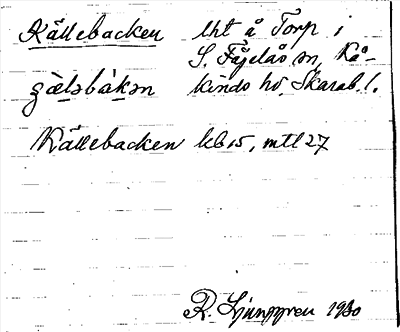 Källebacken lht å Torp i
S. Fågelås sn, Kå-
kinds hd, Skarab. l.
Källebacken kb 15, mtl 27
R. Ljunggren 1930